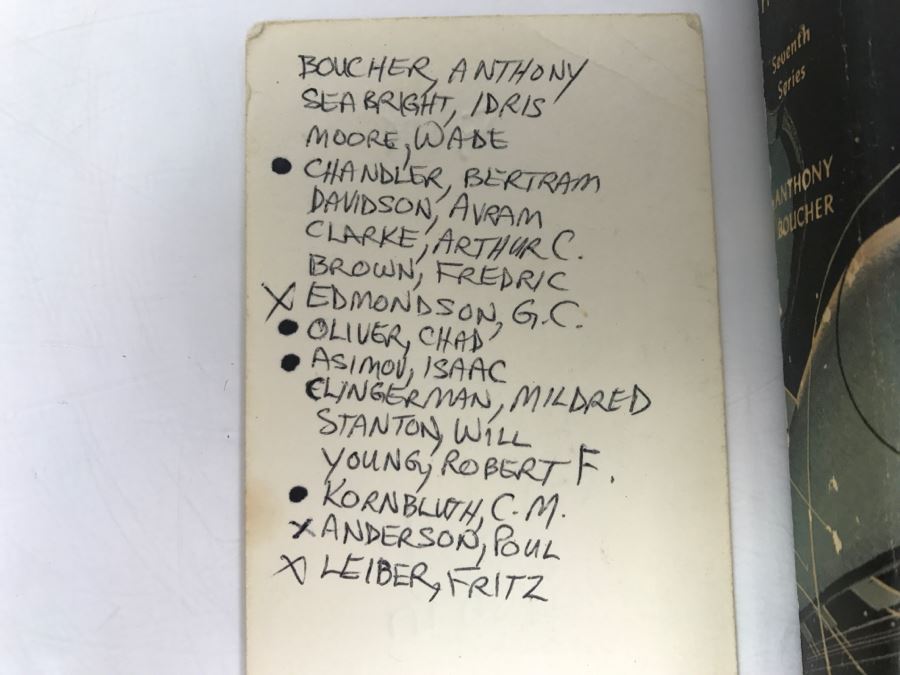 BOUCHER, ANTHONY
SEABRIGHT, IDRIS
MOORE, WADE
● CHANDLER, BERTRAM
DAVIDSON, AVRAM
CLARKE, ARTHUR C.
BROWN, FREDRIC
X EDMONDSON, G.C.
● OLIVER, CHAD
● ASIMOV, ISAAC
CLINGERMAN, MILDRED
STANTON, WILL
YOUNG, ROBERT F.
● KORNBLUTH, C.M.
X ANDERSON, POUL
X LEIBER, FRITZ
Seventh
Series
ANTHONY
BOUCHER